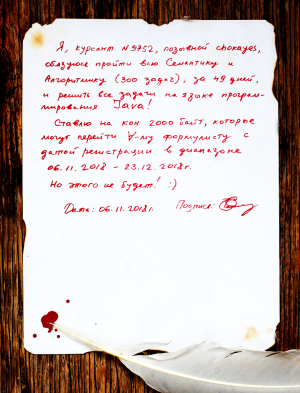 Я, курсант №9752, позывной chokayes,
обязуюсь пройти всю Семантику и
Алгоритмику (300 задач), за 49 дней,
и решить все задачи на языке програм-
мирования Java!
Ставлю на кон 2000 байт, которые
могут перейти ∀-му формулисту с
датой регистрации в диапазоне
06.11.2018 - 23.12.2018г.
Но этого не будет! :)
Дата: 06.11.2018г. Подпись: